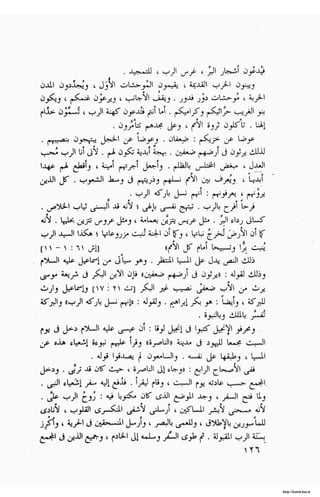 فيُدعَون أشجار البرّ ، غرس الرب ، للتمجيد .
ويبنون الخرب القديمة ، ويقيمون المتوحشات الأُوَل ، ويُجدّدون المدن
الخربة ، متوحشات دَور فدَور . ويقف الأجانب ، ويرعون غنمكم ، ويكون
بنو الغريب حرّاثيكم وكراميكم . أما أنتم فتُدعَون كهنة الرب ، وتُسمَّون خدّام
إلهنا . تأكلون ثروة الأمم ، وعلى مجدهم تتأمرون .
عوضا عن خزيكم : ضعفان . وعوضا عن الخجل يبتهجون بنصيبهم .
لذلك يرثون في أرضهم ضعفين . بهجة أبدية تكون لهم . لأني أنا الرب مُحب
العدل ، مبغض المختلس بالظلم . وأجعل أجرتهم أمينة ، وأقطع لهم عهدا
أبديا ، ويُعرف بين الأمم نسلهم وذريتهم في وسط الشعوب . كل الذين
يرونهم ، يعرفونهم : أنهم نسل باركه الرب .
فرحا أفرح بالرب . تبتهج نفسي بإلهي ، لأنه قد ألبسني ثياب الخلاص .
كساني رداء البر . مثل عريس يتزين بعمامة ، ومثل عروس تتزين بحليها . لأنه
كما أن الأرض تُخرج نباتها ، وكما أن الجنة تُنبت مزروعاتها ؛ هكذا السيد الرب
يُنبت برًّا وتسبيحا أمام كل الأمم» [إش 61 : 1 - 11]
ذلك النص يدل على المسيا المنتظر . وهو من نسل إسماعيل عليه السلام
لقوله : وذلك لقوله : «يرثون في أرضهم ضعفين» فإن الابن البكر في شريعة موسى
يرث من الأب نصيب ضعفي نصيب غير البكر [تث 21 : 17] وإسماعيل وارث
للبركة ، وأيضا : هو بكر إبراهيم . ولقوله : «أنهم نسل باركه الرب» والبركة
تُفسّر بالملك والنبوة .
ومحرفو الإنجيل كتبوا في إنجيل لوقا : أن عيسى عليه السلام دخل في يوم
السبت مجمعا لليهود في مدينة «الناصرة» وقرأ عليهم نبوءة إشعياء هذه عن
المسيا ، وطبقها على نفسه . والسامعون لم يصدقوا قوله .
ففي الأصحاح الرابع : «وجاء إلى الناصرة ، حيث كان قد تربّى . ودخل
المجمع حسب عادته يوم السبت ، وقام ليقرأ . فدُفع إليه سفر إشعياء النبي .
ولما فتح السفر ، وجد الموضع الذي كان مكتوبا فيه : رُوحُ الرب عليّ .
لأنه مسحني لأُبشر المساكين ، أرسلني لأشفي المنكسري القلوب ، لأنادي
للمأسورين بالإطلاق ، وللعمي بالبصر ، وأرسل المنسحقين في الحرية ، وأكرز
بسنة الرب المقبولة . ثم طوى السفر وسلمه إلى الخادم ، وجلس . وجميع الذين في المجمع
١٢٦
http://kotob.has.it